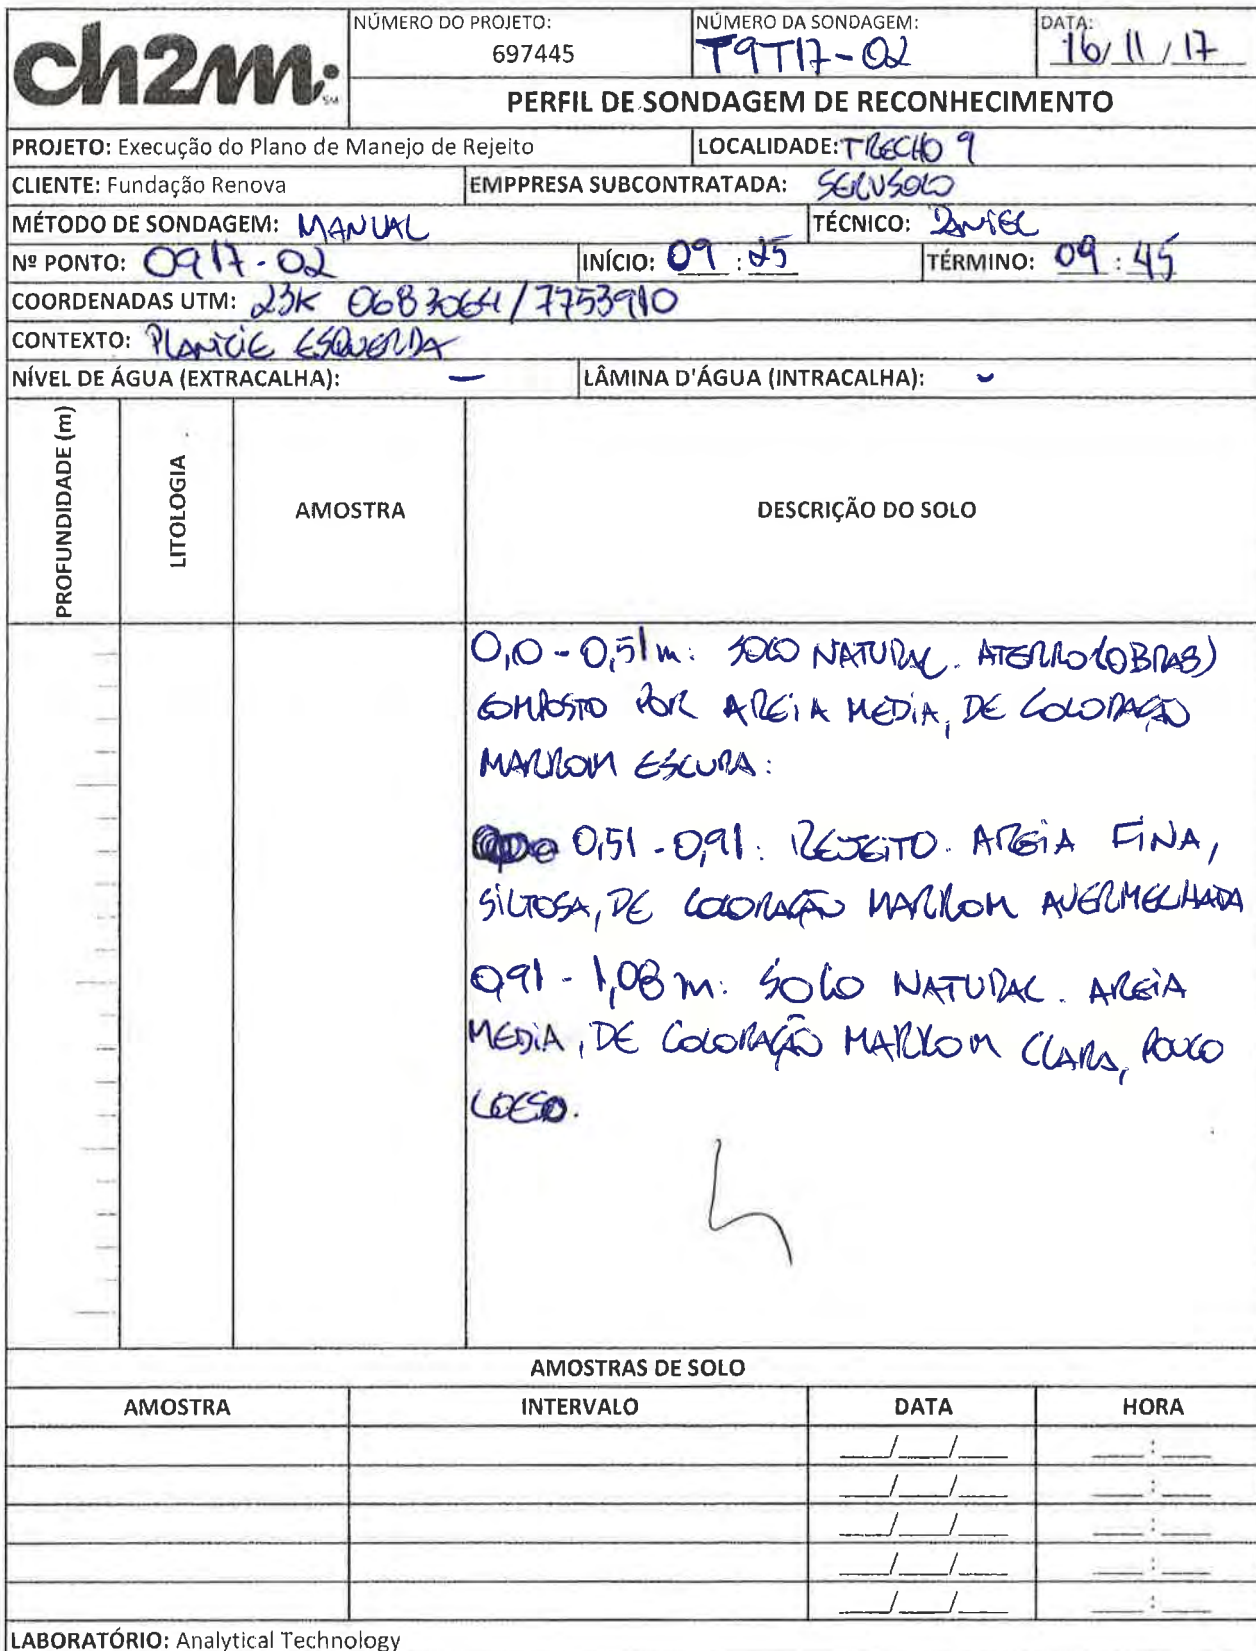 ch2m: SM
NÚMERO DO PROJETO:
697445
NÚMERO DA SONDAGEM:
T9T17-02
DATA:
16/11/17
PERFIL DE SONDAGEM DE RECONHECIMENTO
PROJETO: Execução do Plano de Manejo de Rejeito
LOCALIDADE: TRECHO 9
CLIENTE: Fundação Renova
EMPPRESA SUBCONTRATADA: SERVSOLO
MÉTODO DE SONDAGEM: MANUAL
TÉCNICO: DANIEL
Nº PONTO: 0917-02
INÍCIO: 09:25
TÉRMINO: 09:45
COORDENADAS UTM: 23K 0683064/7753910
CONTEXTO: PLANÍCIE ESQUERDA
NÍVEL DE ÁGUA (EXTRACALHA): –
LÂMINA D'ÁGUA (INTRACALHA): -
PROFUNDIDADE (m)
LITOLOGIA
AMOSTRA
DESCRIÇÃO DO SOLO
0,0 - 0,51m: SOLO NATURAL. ATERRO (OBRAS)
COMPOSTO POR AREIA MEDIA, DE COLORAÇÃO
MARROM ESCURA:
0,51 - 0,91: REJEITO. AREIA FINA,
SILTOSA, DE COLORAÇÃO MARROM AVERMELHADA
0,91 - 1,08 m: SOLO NATURAL. AREIA
MEDIA, DE COLORAÇÃO MARROM CLARA, POUCO
COESO.
AMOSTRAS DE SOLO
AMOSTRA INTERVALO DATA HORA
___/___/___ ___:___
___/___/___ ___:___
___/___/___ ___:___
___/___/___ ___:___
___/___/___ ___:___
LABORATÓRIO: Analytical Technology